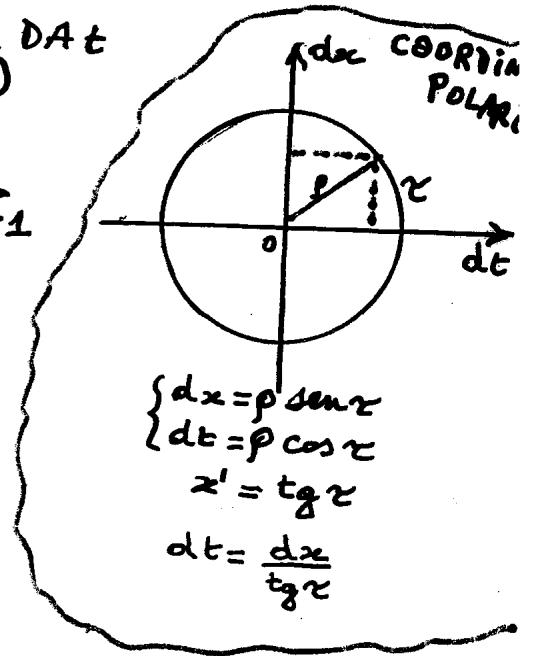 DA t
dx
COORDIN
POLARI
ρ
τ
0
dt
-1
{ dx = ρ sen τ
dt = ρ cos τ
x' = tg τ
dt = dx / tg τ